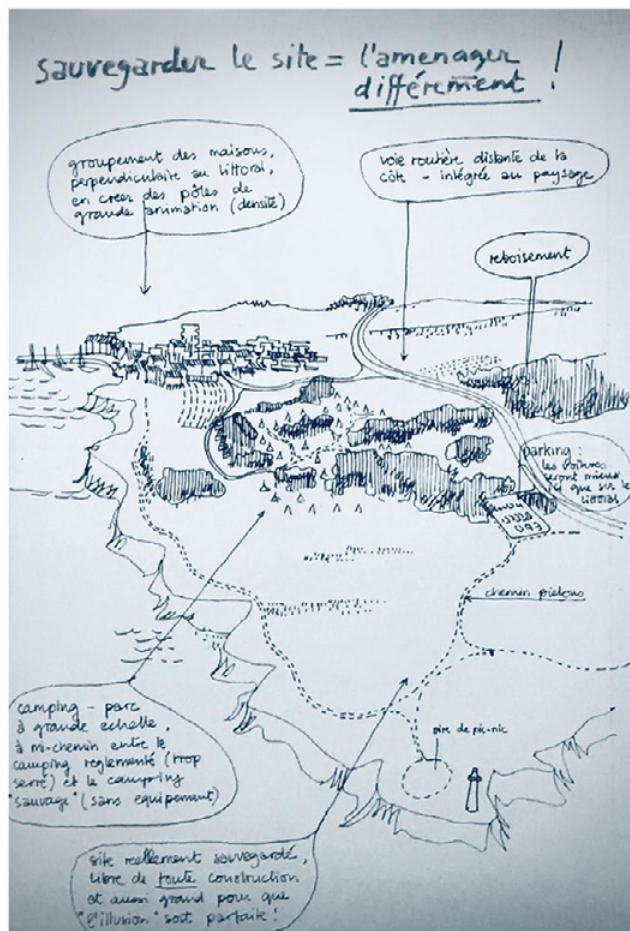 sauvegarder le site = l'amenager
différement !
groupement des maisons,
perpendiculaire au littoral,
en créer des pôles de
grande animation (densité)
voie routière distante de la
côte - intégrée au paysage
reboisement
parking :
les voitures
seront mieux
ici que sur le
littoral
chemin piétons
camping - parc
à grande echelle,
à mi-chemin entre le
camping reglementé (trop
serré) et le camping
"sauvage" (sans equipement)
aire de pic-nic
site reellement sauvegardé,
libre de toute construction
et aussi grand pour que
"l'illusion" soit parfaite !